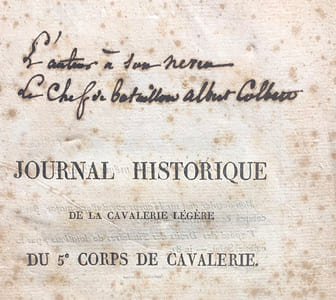 L'auteur à son neveu
Le Chef de bataillon albert Colbert
JOURNAL HISTORIQUE
DE LA CAVALERIE LÉGÈRE
DU 5e CORPS DE CAVALERIE.